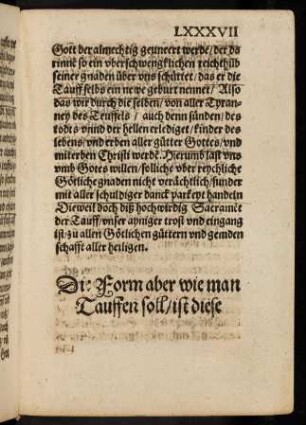 LXXXVII
Gott der almechtig geuneert werde/ der ds
rinnē so ein vberschwengklichen reichthūb
seiner gnaden über vns schüttet/ das er die
Tauff selbs ein newe geburt nennet/ Also
das wir durch die selben/ von aller Tyran-
ney des Teuffels/ auch denn sünden/ des
todts vnnd der hellen erlediget/ kinder des
lebens/ vnd erben aller gütter Gottes/ vnd
miterben Christi werdē. Hierumb last vns
vmb Gottes willen/ solliche vber reychliche
Götliche gnaden nicht verächtlich/ sunder
mit aller schuldiger danckparkeyt handeln
Dieweil doch diß hochwirdig Sacramēt
der Tauff/ vnser ayniger trost vnd eingang
ist/ zu allen Götlichen güttern vnd gemeyn
schafft aller heiligen.
Die Form aber wie man
Tauffen soll/ ist diese